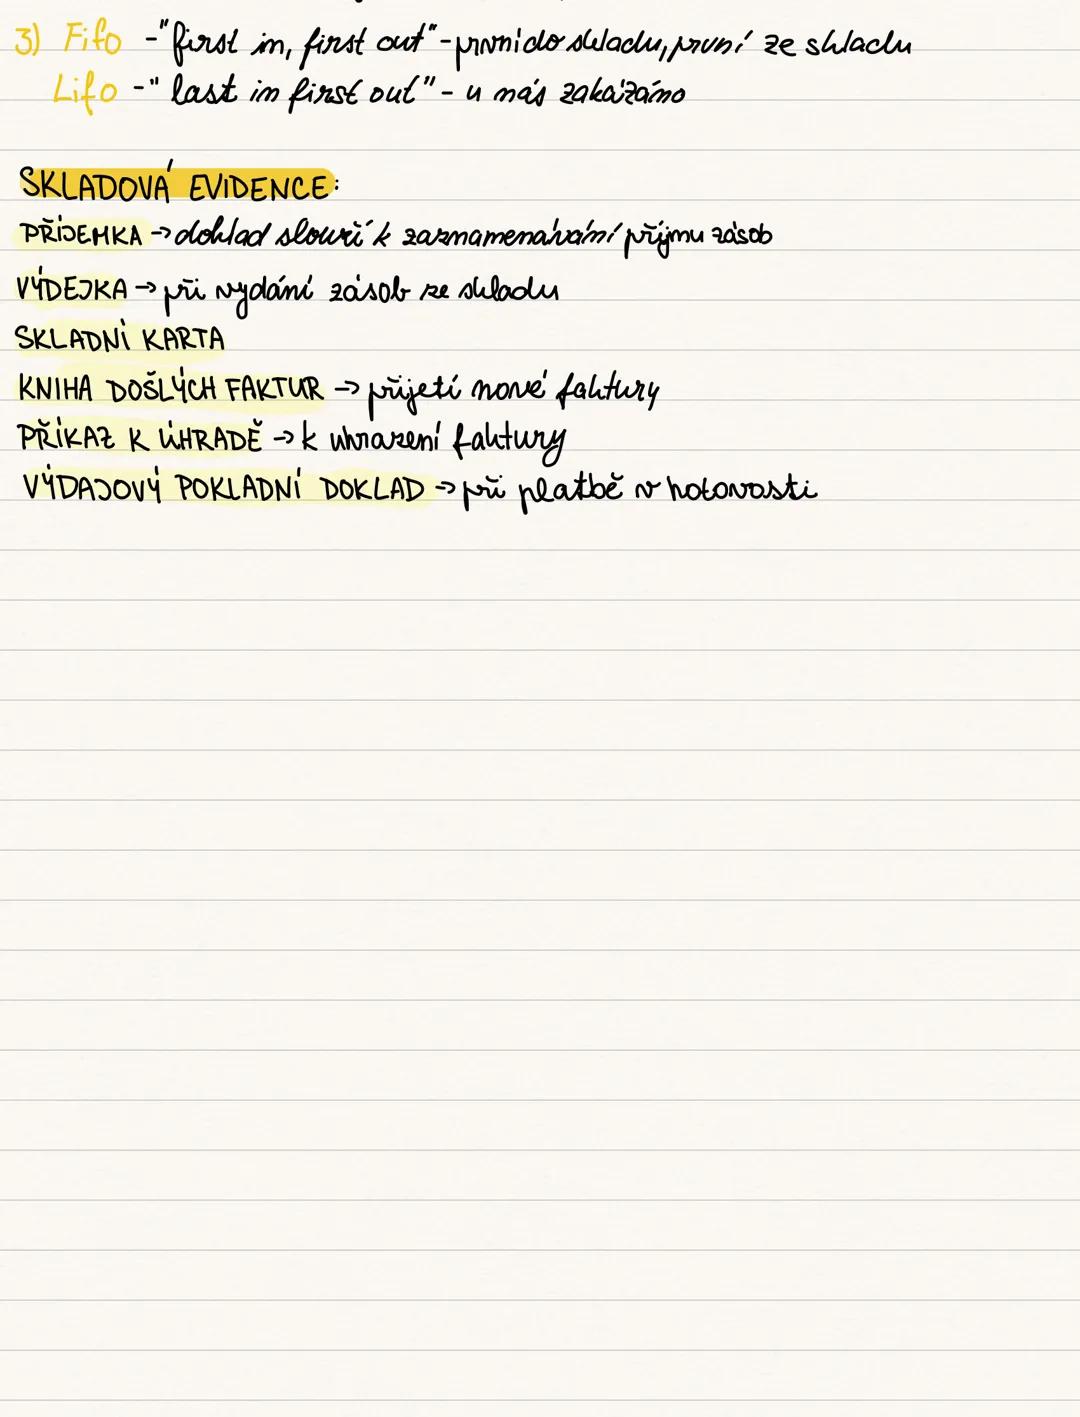 3) Fifo -"first in, first out"- první do skladu, první ze skladu
Lifo -"last in first out"- u nás zakázáno
SKLADOVÁ EVIDENCE:
PŘÍJEMKA → doklad slouží k zaznamenávání příjmu zásob
VÝDEJKA → při vydání zásob ze skladu
SKLADNÍ KARTA
KNIHA DOŠLÝCH FAKTUR → přijetí nové faktury
PŘÍKAZ K ÚHRADĚ → k uhrazení faktury
VÝDAJOVÝ POKLADNÍ DOKLAD → při platbě v hotovosti